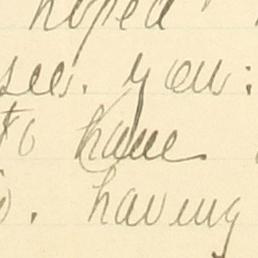 hoped
see. you:
to have
. having